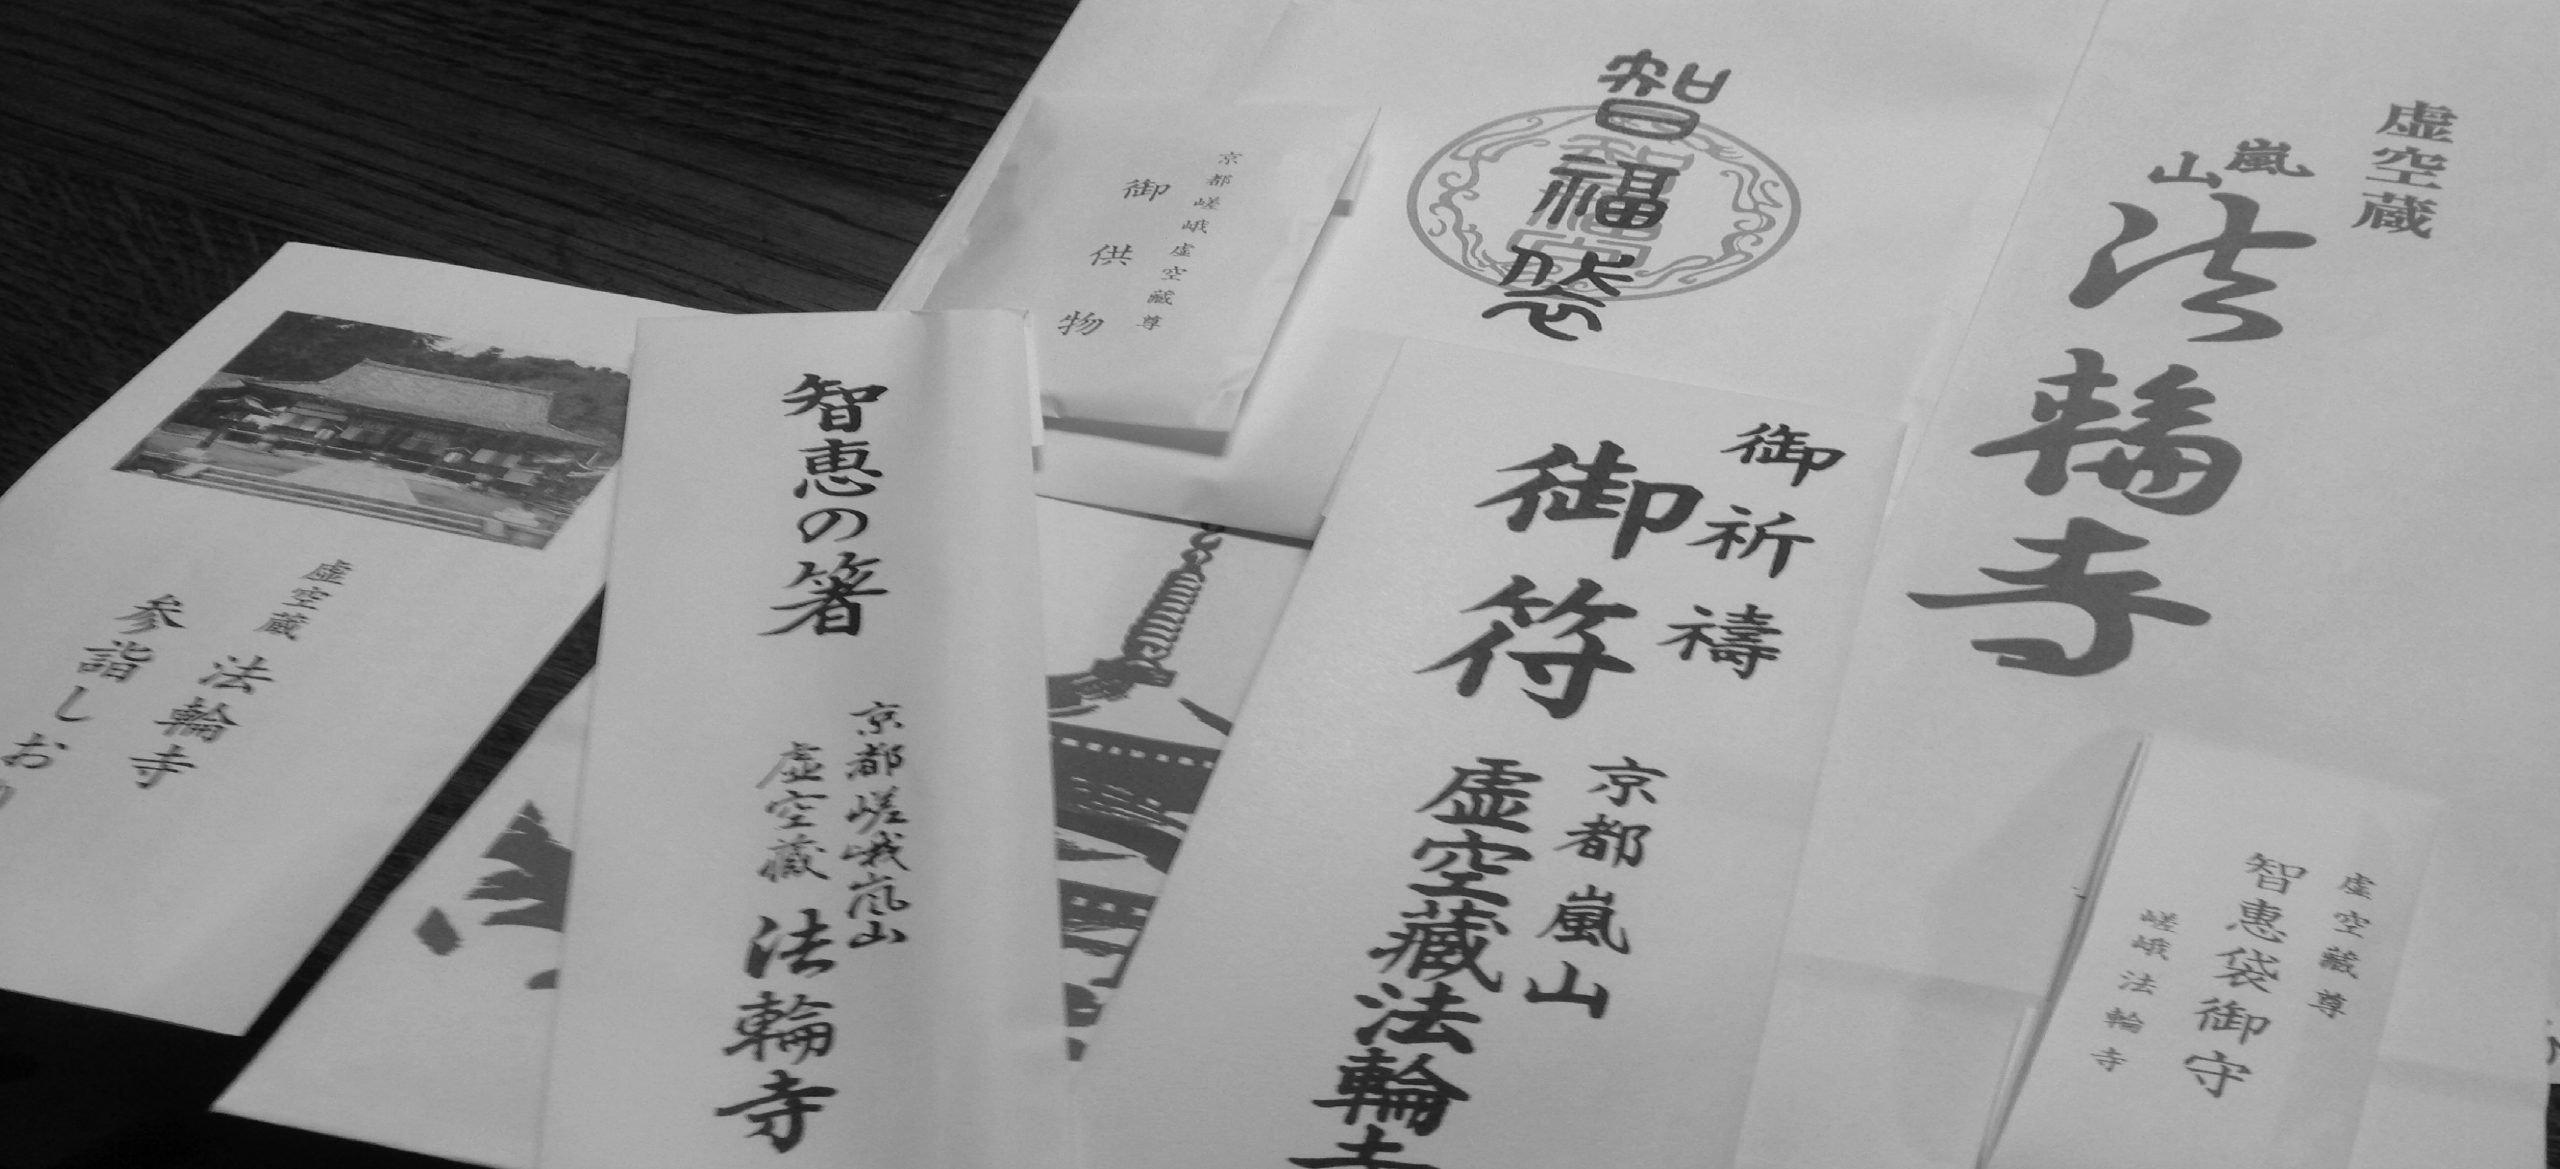 虚空蔵
嵐山
法輪寺
智福袋
京都嵯峨虚空蔵尊
御供物
御祈禱
御符
京都嵐山
虚空蔵法輪寺
智恵の箸
京都嵯峨嵐山
虚空蔵 法輪寺
虚空蔵 法輪寺
参詣しおり
虚空蔵尊
智恵袋御守
嵯峨法輪寺